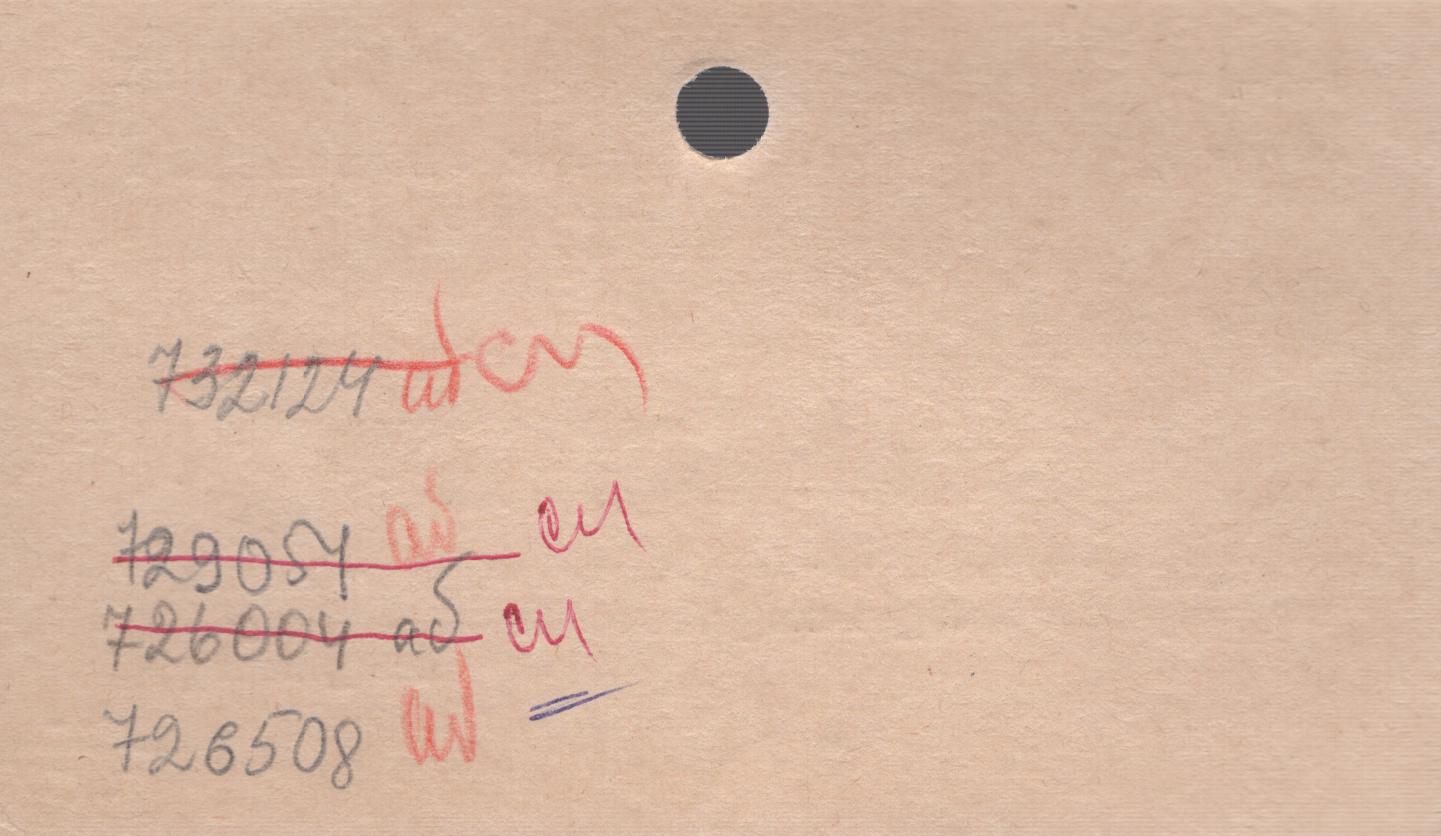 732124 аб си
729054 аб си
726004 аб си
726508 аб